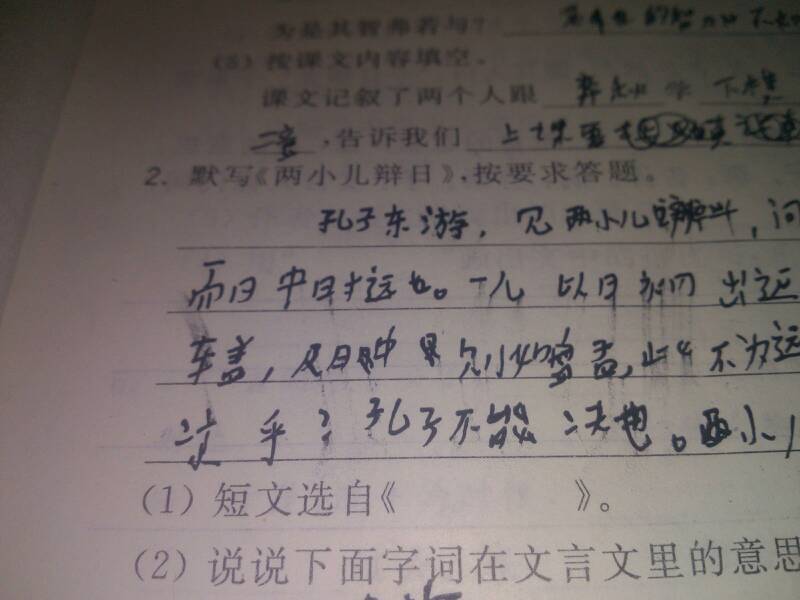 为是其智弗若与？
(3) 按课文内容填空。
课文记叙了两个人跟 弈秋 学 下棋
，告诉我们 上课要
2. 默写《两小儿辩日》，按要求答题。
孔子东游，见两小儿辩斗，问
而日中时远也。一儿以日初出远
车盖，及日中则如盘盂，此不为远
乎？孔子不能决也。两小儿
(1) 短文选自《 》。
(2) 说说下面字词在文言文里的意思